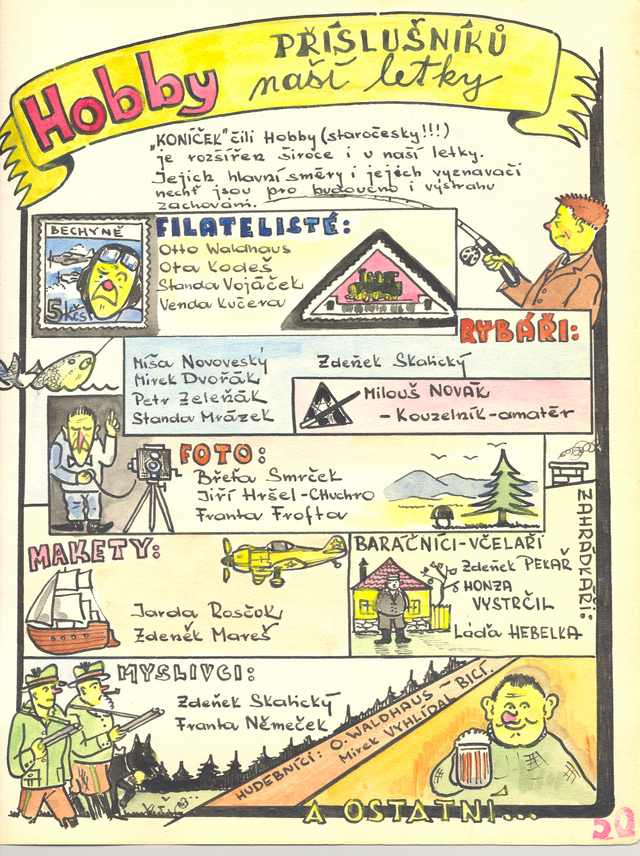 Hobby PŘÍSLUŠNÍKŮ
naší letky
„KONÍČEK" čili Hobby (staročesky!!!)
je rozšířen široce i u naší letky.
Jejich hlavní směry i jejich vyznavači
nechť jsou pro budoucno i výstrahu
zachováni.
BECHYNĚ
5 Kčs
FILATELISTÉ:
Otto Waldhaus
Ota Kodeš
Standa Vojáček
Venda Kučera
RYBÁŘI:
Míša Novoveský
Mirek Dvořák
Petr Zeleňák
Standa Mrázek
Zdeňek Skalický
Milouš NOVÁK
- Kouzelník-amatér
FOTO:
Břeťa Smrček
Jiří Hršel-Chuchro
Franta Frofta
ZAHRÁDKÁŘI:
MAKETY:
Jarda Rosčok
Zdeněk Mareš
BARÁČNÍCI-VČELAŘI
Zdeněk PEKAŘ
HONZA
VYSTRČIL
Láďa HEBELKA
MYSLIVCI:
Zdeňek Skalický
Franta Němeček
HUDEBNÍCI: O. WALDHAUS -
Mirek VYHLÍDAL BICÍ.
A OSTATNÍ...
50